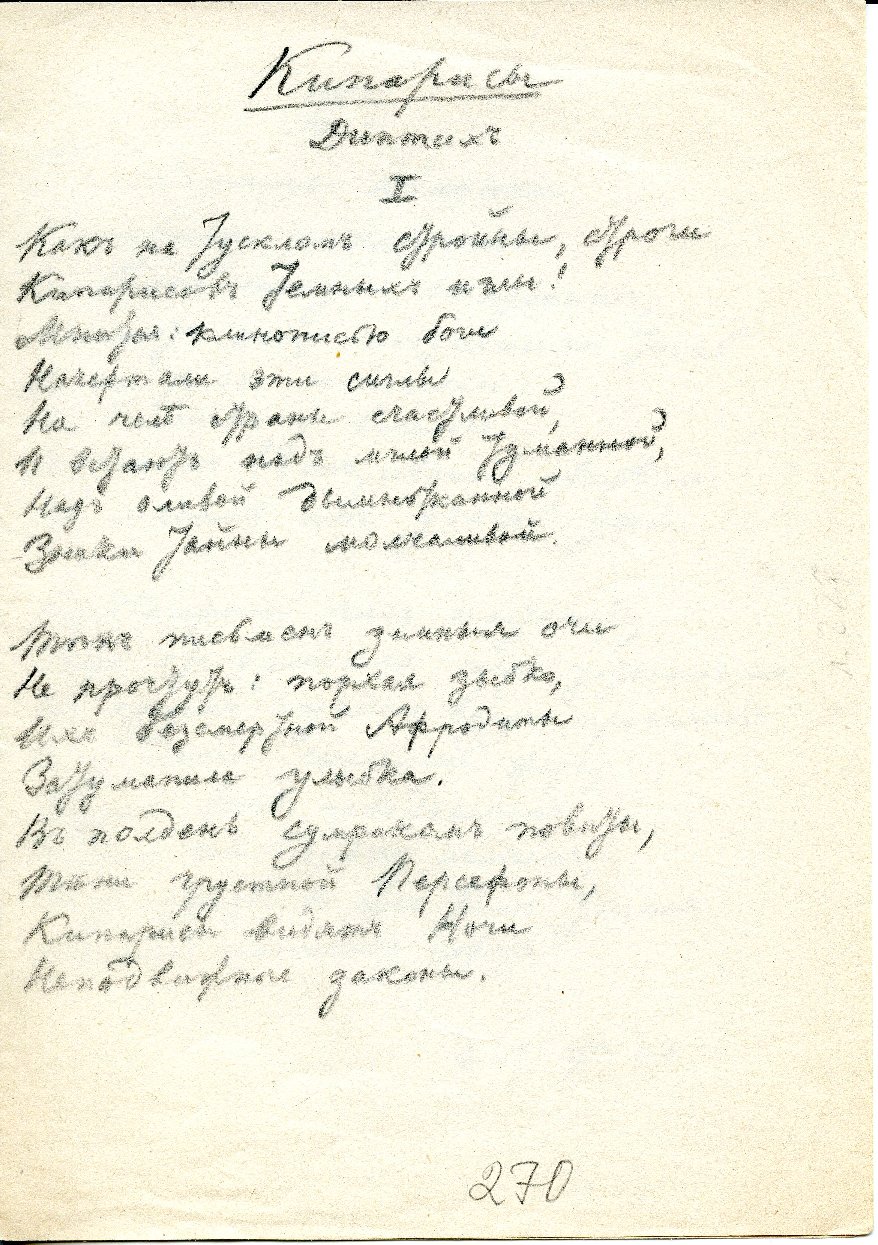 Кипарисы
Диптихъ
I
Какъ на тускломъ стройны, строги
Кипарисовъ темныхъ иглы!
Мнится: клинописью боги
Начертали эти сиглы
На челѣ страны счастливой,
И встаютъ надъ мглой туманной,
Надъ оливой дымнотканной
Знаки тайны молчаливой.
Тѣхъ письменъ земныя очи
Не прочтутъ: порхая зыбко,
Ихъ безсмертной Афродиты
Затуманила улыбка.
Въ полдень сумракомъ повиты,
Тѣни грустной Персефоны,
Кипарисы видятъ Ночи
Неподвижные законы.
270